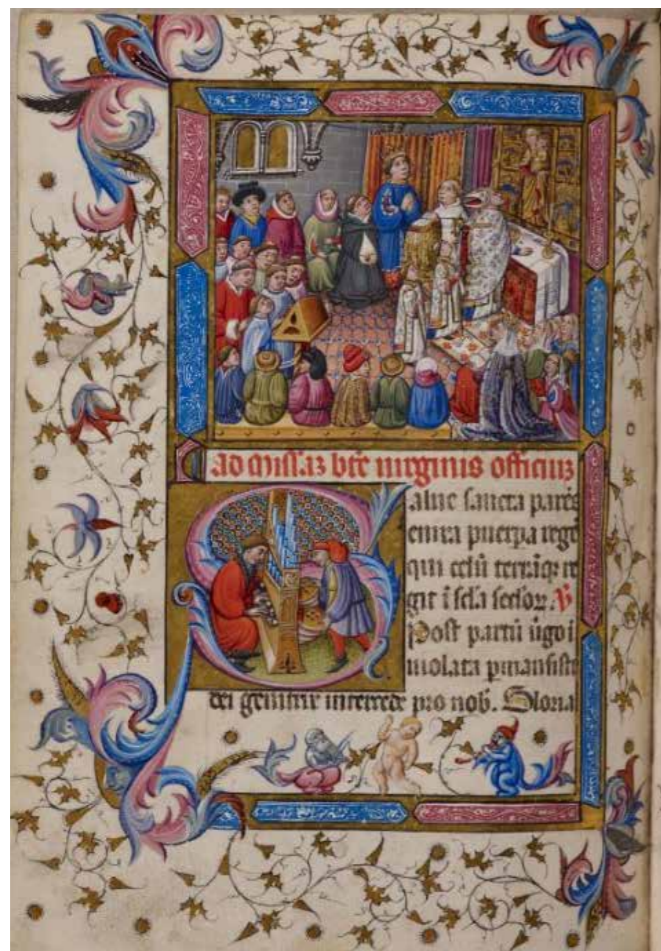 ad missaz bte uirginis officiuz
alue sancta parēs
enixa puerpa regē
qui celū terrāqz re
git ī scla sclorz. V
Post partū ugo ī
uiolata pmansisti
dei genitrix intercede pro nob. Gloria